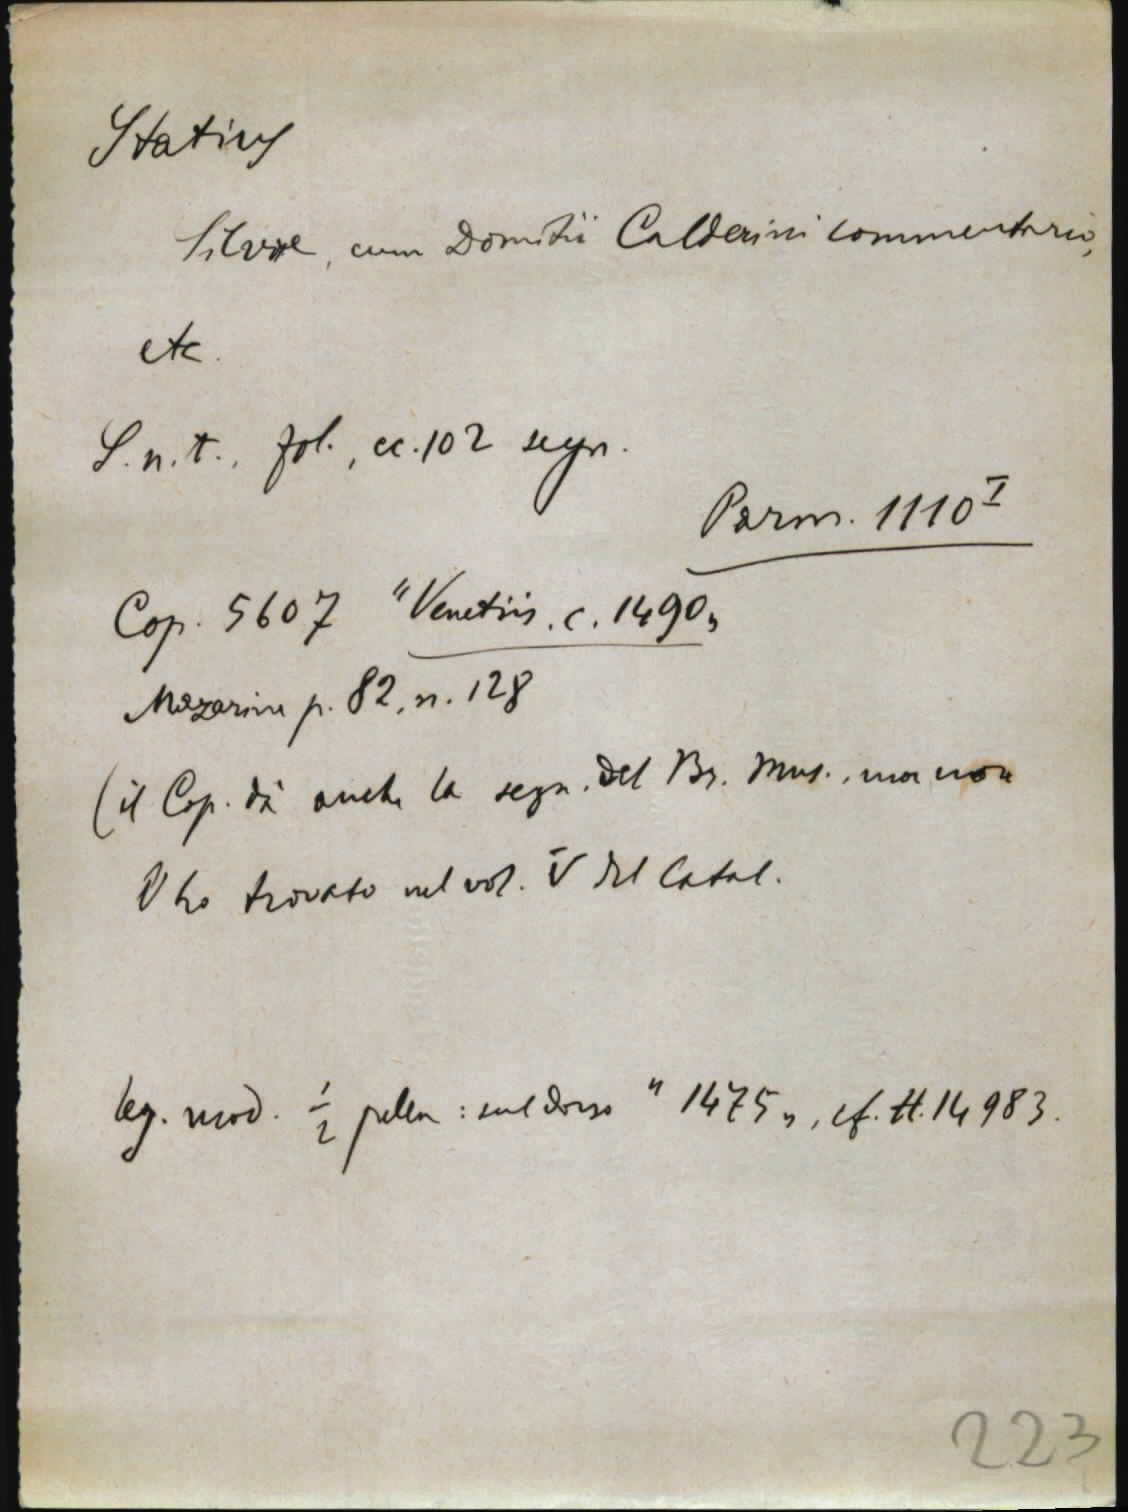 Statius
Silvae, cum Domitii Calderini commentario,
etc.
S.n.t., fol., cc.102 segn.
Parm. 1110 I
Cop. 5607 "Venetiis. c. 1490„
Mazarine p. 82, n. 128
(il Cop. dà anche la segn. del Br. Mus., ma non
l'ho trovato nel vol. V del Catal.
leg. mod. ½ pelle : sul dorso "1475„, cf. H. 14983.
223